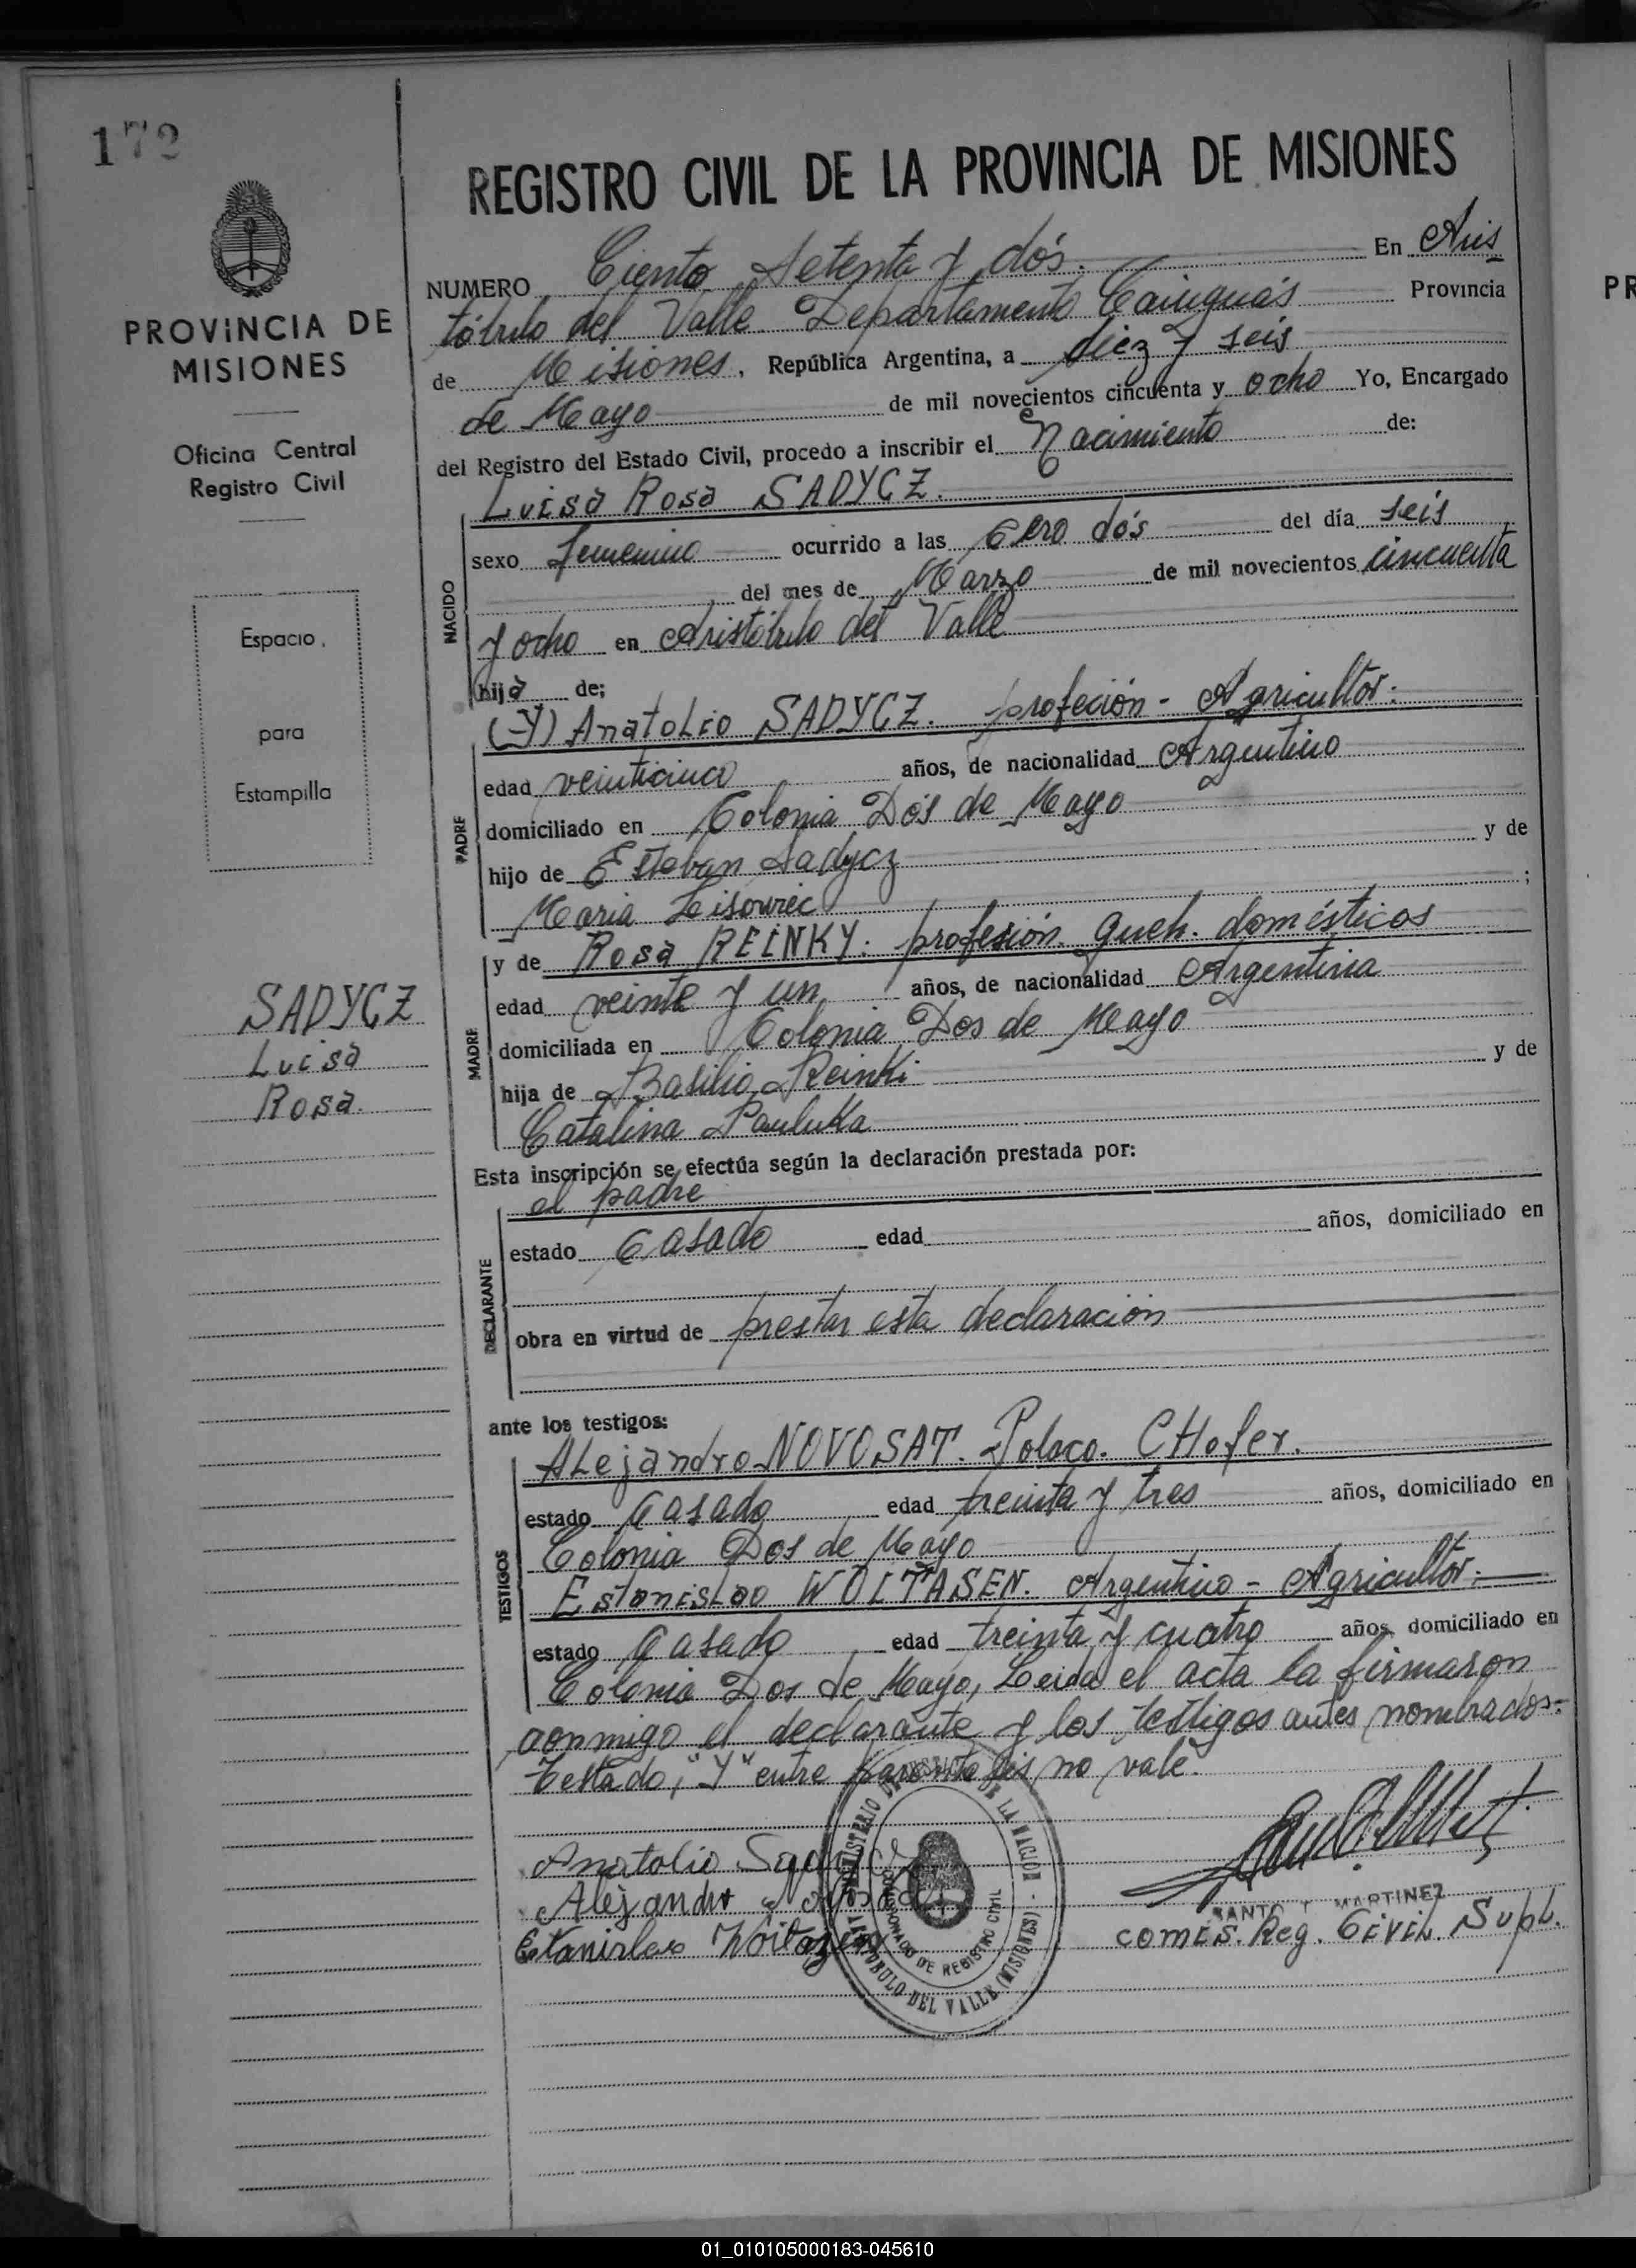 172
PROVINCIA DE
MISIONES
Oficina Central
Registro Civil
Espacio
para
Estampilla
SADYCZ
Luisa
Rosa.
REGISTRO CIVIL DE LA PROVINCIA DE MISIONES
NUMERO Ciento Setenta y dós. En Aris
tóbulo del Valle Departamento Cainguás Provincia
de Misiones, República Argentina, a diez y seis
de Mayo de mil novecientos cincuenta y ocho Yo, Encargado
del Registro del Estado Civil, procedo a inscribir el Nacimiento de:
Luisa Rosa SADYCZ.
NACIDO
sexo femenino ocurrido a las Cero dós del día seis
del mes de Marzo de mil novecientos cincuenta
y ocho en Aristóbulo del Valle
hija de;
(Y) Anatolio SADYCZ. profeción - Agricultor.
PADRE
edad veinticinco años, de nacionalidad Argentino
domiciliado en Colonia Dós de Mayo
hijo de Esteban Sadycz y de
Maria Lisowiec ;
y de Rosa REINKY. profesión. queh. domésticos
MADRE
edad veinte y un años, de nacionalidad Argentina
domiciliada en Colonia Dos de Mayo
hija de Basilio Reinki y de
Catalina Pauluka
Esta inscripción se efectúa según la declaración prestada por:
el padre
DECLARANTE
estado Casado edad años, domiciliado en
obra en virtud de prestar esta declaración
ante los testigos:
Alejandro NOVOSAT. Polaco. CHofer.
TESTIGOS
estado Casado edad treinta y tres años, domiciliado en
Colonia Dos de Mayo
Estanislao WOITASEN. Argentino - Agricultor.
estado Casado edad treinta y cuatro años, domiciliado en
Colonia Dos de Mayo, Leida el acta la firmaron
conmigo el declarante y los testigos antes nombrados.
Testado, "Y" entre parentesis no vale.
Anatolio Sadycz
Alejandro
Estanislao
MINISTERIO DE DE LA NACION
DE REGISTRO CIVIL
ARISTOBULO DEL VALLE (MISIONES)
SANTO T MARTINEZ
comis. Reg. Civil. Supl.
PR
01_010105000183-045610